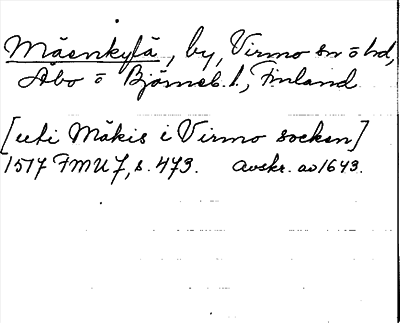 Mäenkylä, by, Virmo sn o hd,
Åbo o Björneb. l., Finland
[uti Mäkis i Virmo socken]
1517 FMU 7, s. 473. Avskr. av 1643.